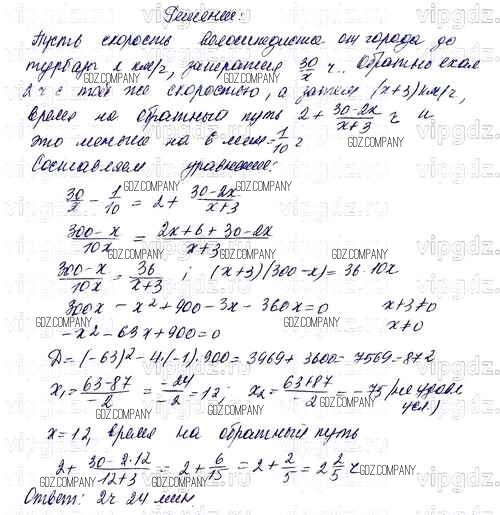 Решение:
Пусть скорость велосипедиста от города до
турбазы x км/ч, затратил 30/x ч. Обратно ехал
2 ч с той же скоростью, а затем (x+3) км/ч,
время на обратный путь 2 + (30-2x)/(x+3) ч и
это меньше на 6 мин = 1/10 ч
Составляем уравнение:
30/x - 1/10 = 2 + (30-2x)/(x+3)
(300-x)/10x = (2x+6+30-2x)/(x+3)
(300-x)/10x = 36/(x+3) ; (x+3)(300-x) = 36·10x
300x - x² + 900 - 3x - 360x = 0 x+3≠0
-x² - 63x + 900 = 0 x≠0
D = (-63)² - 4·(-1)·900 = 3969 + 3600 = 7569 = 87²
x₁ = (63-87)/-2 = -24/-2 = 12; x₂ = (63+87)/-2 = -75 (не удовл.
усл.)
x = 12, время на обратный путь
2 + (30-2·12)/(12+3) = 2 + 6/15 = 2 + 2/5 = 2 2/5 ч
Ответ: 2ч 24 мин.
GDZ.COMPANY
vipgdz